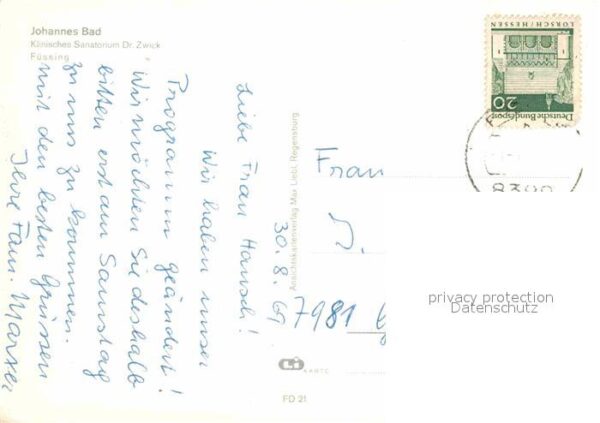 Johannes Bad
Klinisches Sanatorium Dr. Zwick
Füssing
30. 8. 69
Liebe Frau Hansch!
Wir haben unser
Programm geändert!
Wir möchten Sie deshalb
bitten erst am Samstag
zu uns zu kommen.
mit den besten Grüssen
Ihre Fam. Marxer
Ansichtskartenverlag Max Liebl, Regensburg
Frau
J.
7981
LORSCH/HESSEN
Deutsche Bundespost
20
8399
Li
KARTE
FD 21
privacy protection
Datenschutz